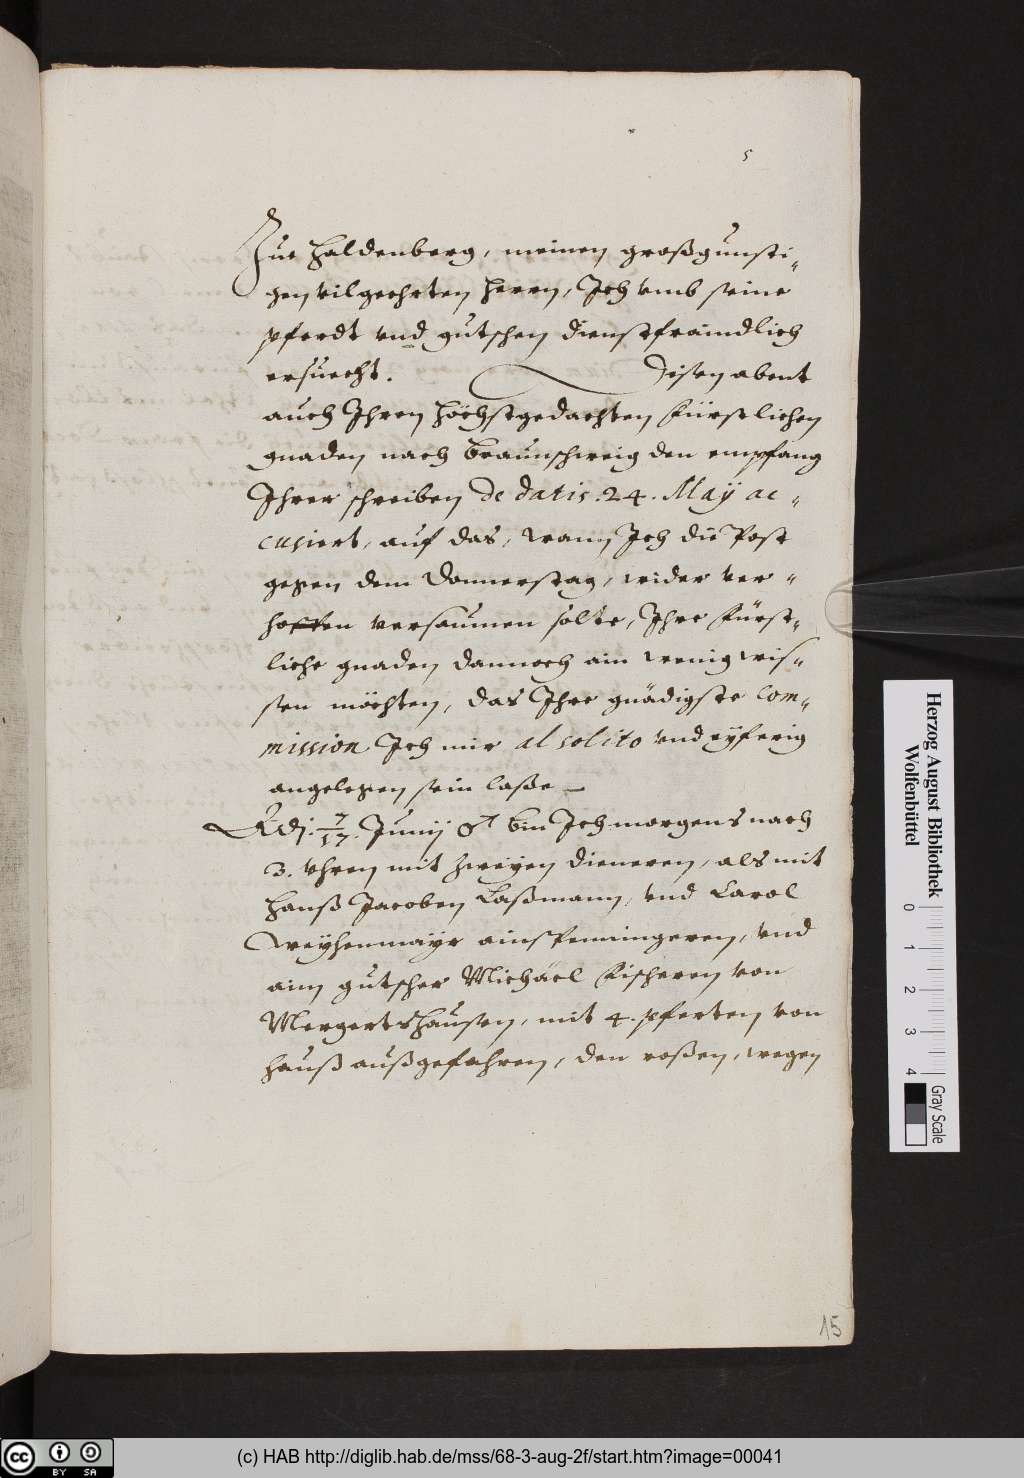 5
Zue Haldenberg, meinen großgunsti„
gen vilgeehrten Herrn, Ich vmb seine
pferdt vnd gutschen dienstfraindlich
ersuecht. Disen abent
auch Ihren Höchstgedachten Fürstlichen
gnaden nach Braunschweig den empfang
Ihrer schreiben de datis .24. Maÿ ac„
cusiert, auf das, wann Ich die Post
gegen dem Donnerstag, wider ver„
hoffen versaumen solte, Ihre Fürst„
liche gnaden dannoch ain wenig wis„
sen möchten, das Ihre gnädigste com„
mission Ich mir al solito vnd eyferig
angelegen sein laße
Adj. 7/17. Junij ♂ bin Ich morgens nach
3. vhren mit zweyen dieneren, als mit
Hanß Jacoben Laßmann, vnd Carol
Weyhenmayr ainspenningeren, vnd
aim gutscher Michäel Fischeren von
Mergertshausen, mit 4. pferten von
hauß außgefahren, den roßen, wegen
15
Herzog August Bibliothek
Wolfenbüttel
0 1 2 3 4
Gray Scale
cc BY SA
(c) HAB http://diglib.hab.de/mss/68-3-aug-2f/start.htm?image=00041